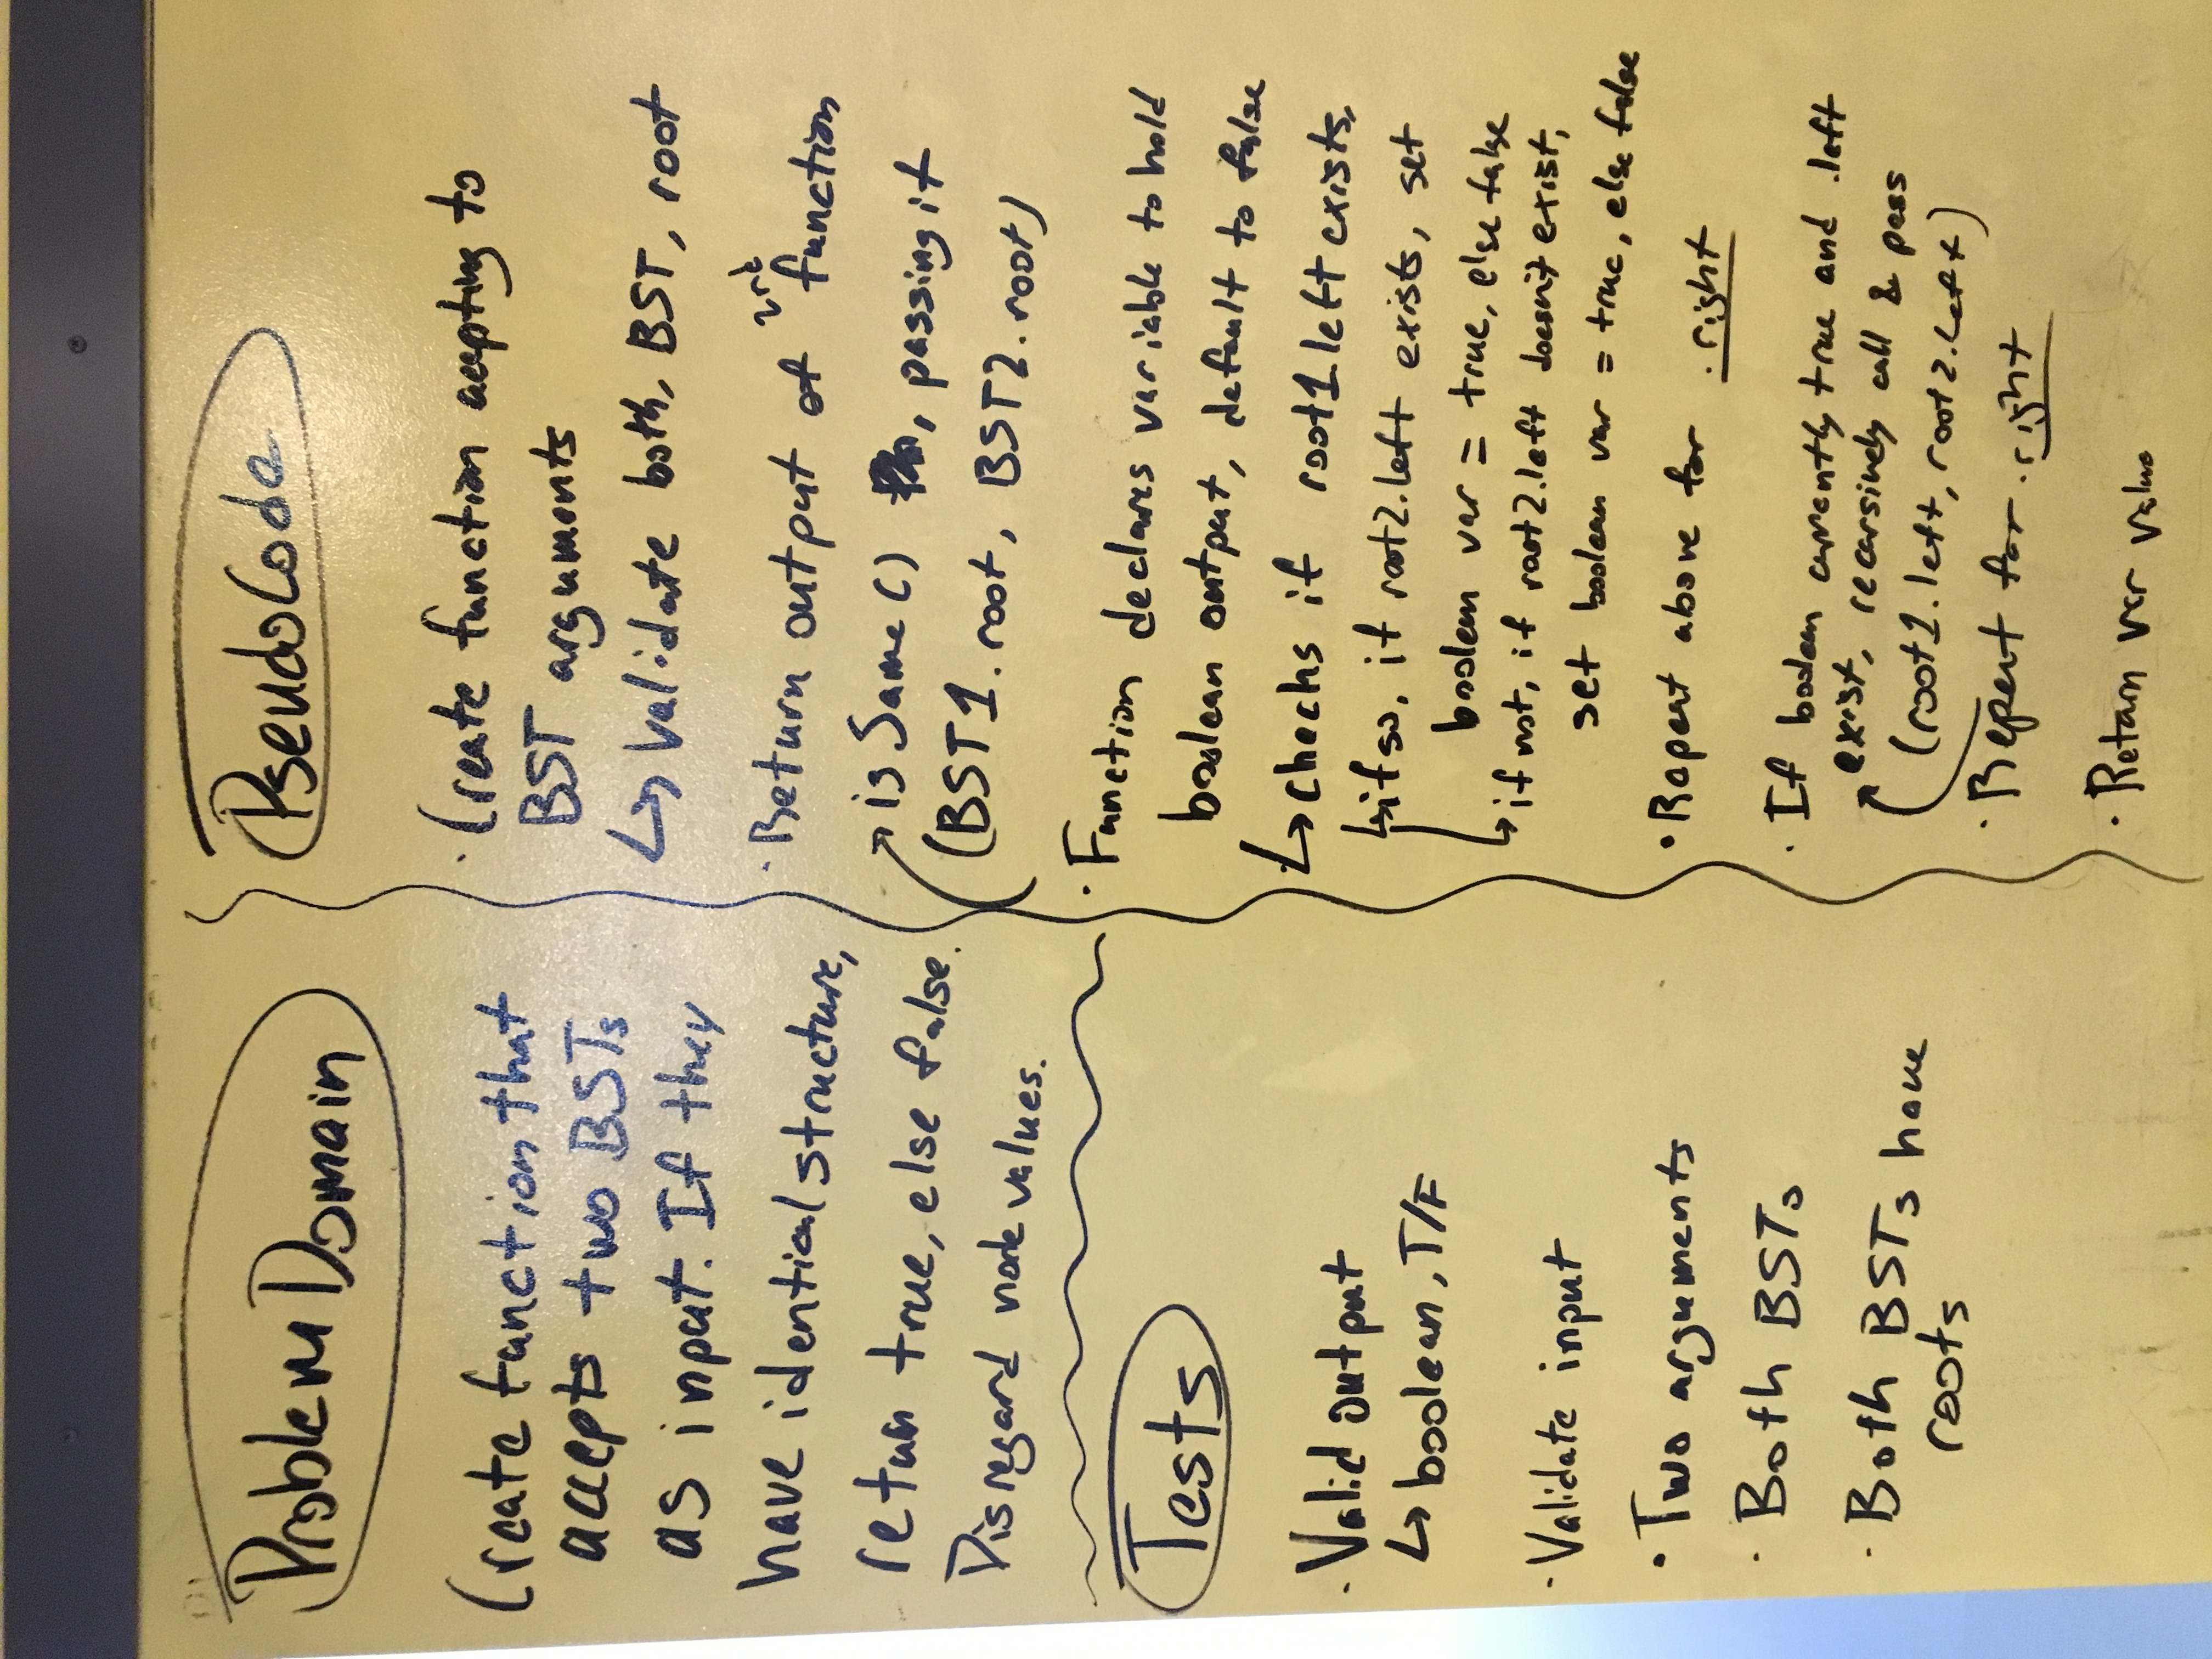 Problem Domain
Create function that
accepts two BSTs
as input. If they
have identical structure,
return true, else false.
Disregard node values.
Tests
· Valid output
↳ boolean, T/F
· Validate input
· Two arguments
· Both BSTs
· Both BSTs have
roots
PseudoCode
· Create function accepting to
BST arguments
↳ Validate both, BST, root
· Return output of 2nd function
isSame() , passing it
(BST1.root, BST2.root)
· Function declares variable to hold
boolean output, default to false
↳ checks if root1.left exists,
↳ if so, if root2.left exists, set
boolean var = true, else false
↳ if not, if root2.left doesn't exist,
set boolean var = true, else false
· Repeat above for .right
· If boolean currently true and .left
exist, recursively call & pass
(root1.left, root2.left)
· Repeat for .right
· Return var value